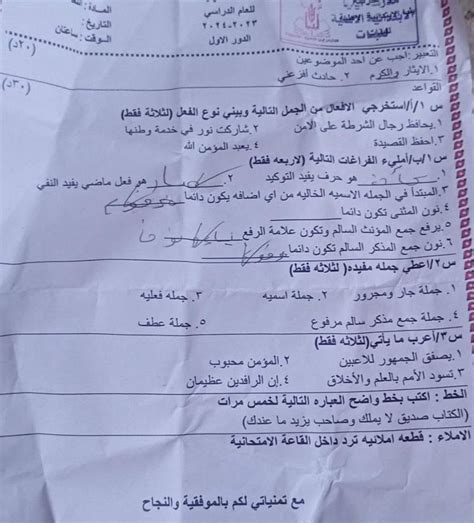 المادة:
للعام الدراسي
التاريخ:
٢٠٢٣-٢٠٢٤
الوقت: ساعتان
الدور الاول
للبنات
التعبير: اجب عن احد الموضوعين (٢٠د)
١. الايثار والكرم ٢. حادث أفزعني
القواعد (٣٠د)
س١/أ/استخرجي الافعال من الجمل التالية وبيني نوع الفعل (لثلاثة فقط)
١. يحافظ رجال الشرطة على الامن ٢. شاركت نور في خدمة وطنها
٣. احفظ القصيدة ٤. يعبد المؤمن الله
س١/ب/أمليء الفراغات التالية (لاربعه فقط)
١. هو حرف يفيد التوكيد ٢. هو فعل ماضي يفيد النفي
٣. المبتدأ في الجمله الاسميه الخاليه من اي اضافه يكون دائما
٤. نون المثنى تكون دائما
٥. يرفع جمع المؤنث السالم وتكون علامة الرفع
٦. نون جمع المذكر السالم تكون دائما
س٢/اعطي جمله مفيده (لثلاثه فقط)
١. جملة جار ومجرور ٢. جملة اسميه ٣. جمله فعليه
٤. جملة جمع مذكر سالم مرفوع ٥. جملة عطف
س٣/أعرب ما يأتي (لثلاثه فقط)
١. يصفق الجمهور للاعبين ٢. المؤمن محبوب
٣. تسود الأمم بالعلم والأخلاق ٤. إن الرافدين عظيمان
الخط : اكتب بخط واضح العباره التالية لخمس مرات
(الكتاب صديق لا يملك وصاحب يزيد ما عندك)
الاملاء : قطعه املائيه ترد داخل القاعة الامتحانية
مع تمنياتي لكم بالموفقية والنجاح